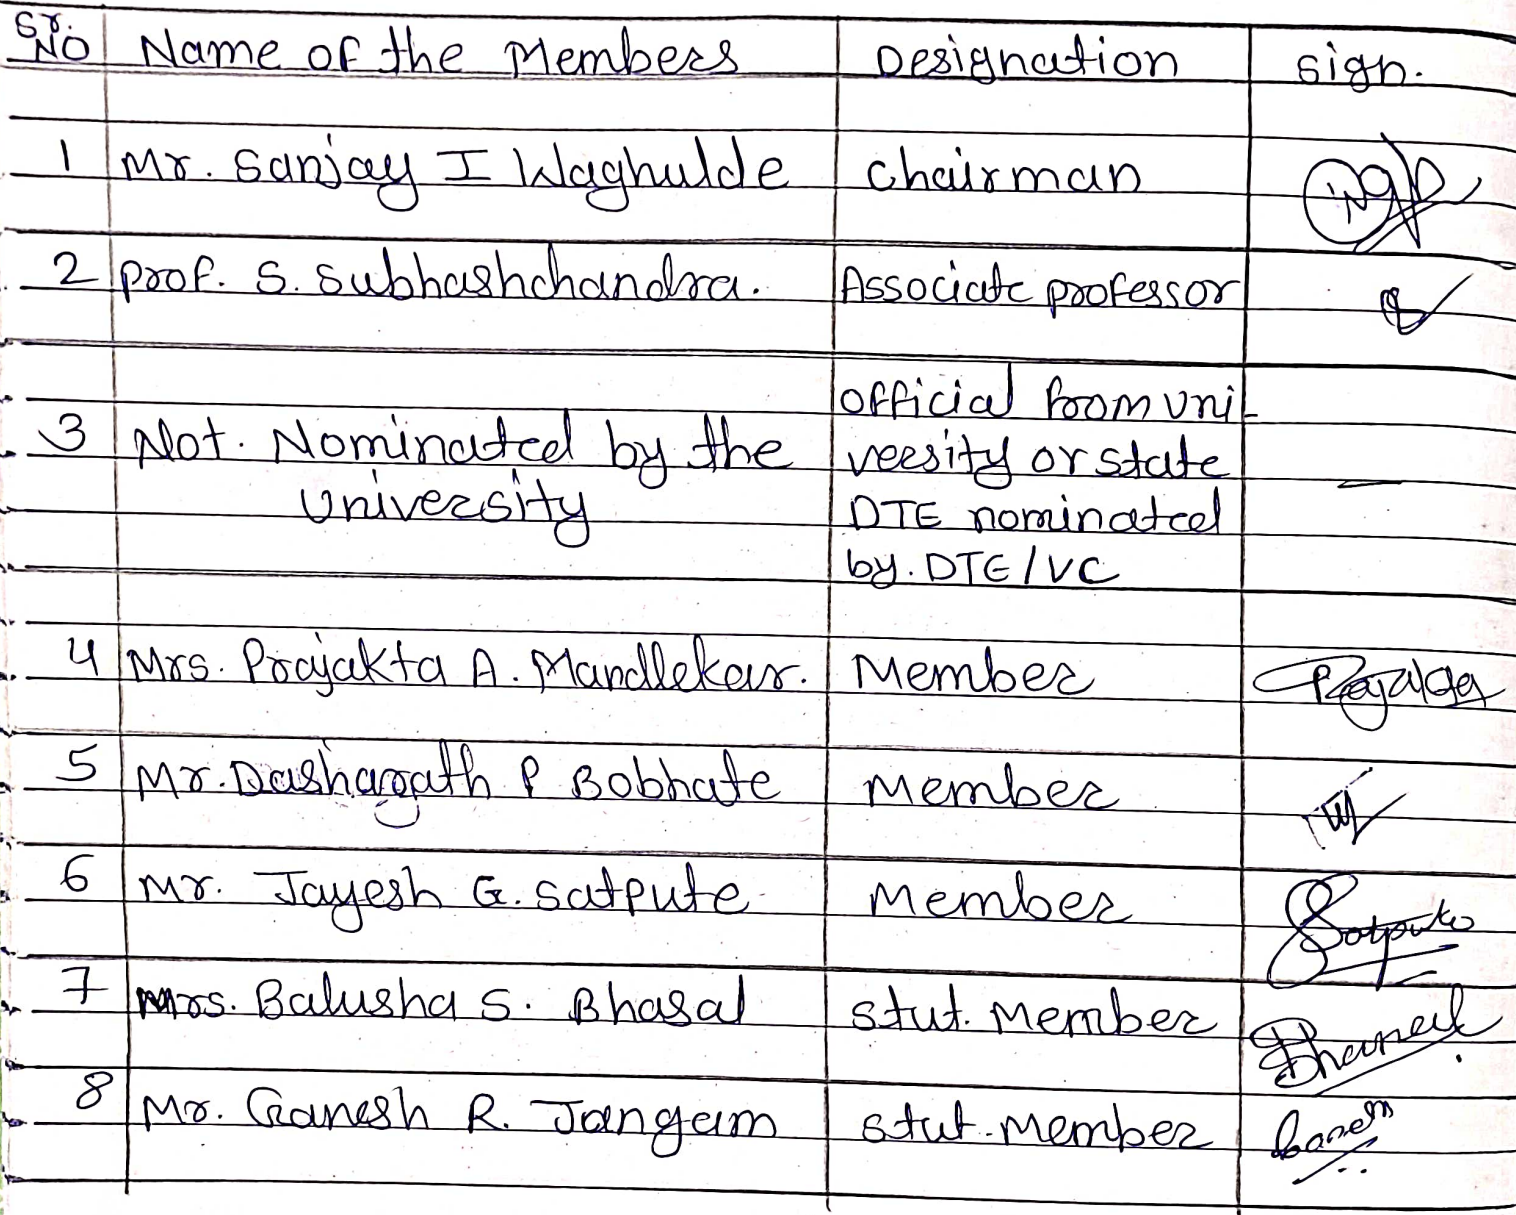 Sr. NO Name of the Members Designation sign.
1 Mr. Sanjay I Waghulde chairman
2 prof. S. Subhashchandra. Associate professor
official from uni-
3 Not. Nominated by the versity or state
university DTE nominated
by. DTE/VC
4 Mrs. Prajakta A. Mandlekar. Member
5 Mr. Dasharath P Bobhate Member
6 Mr. Jayesh G. Satpute Member Satpute
7 Mrs. Balusha S. Bhasal stut. Member
8 Mr. Ganesh R. Jangam stut. Member Ganesh